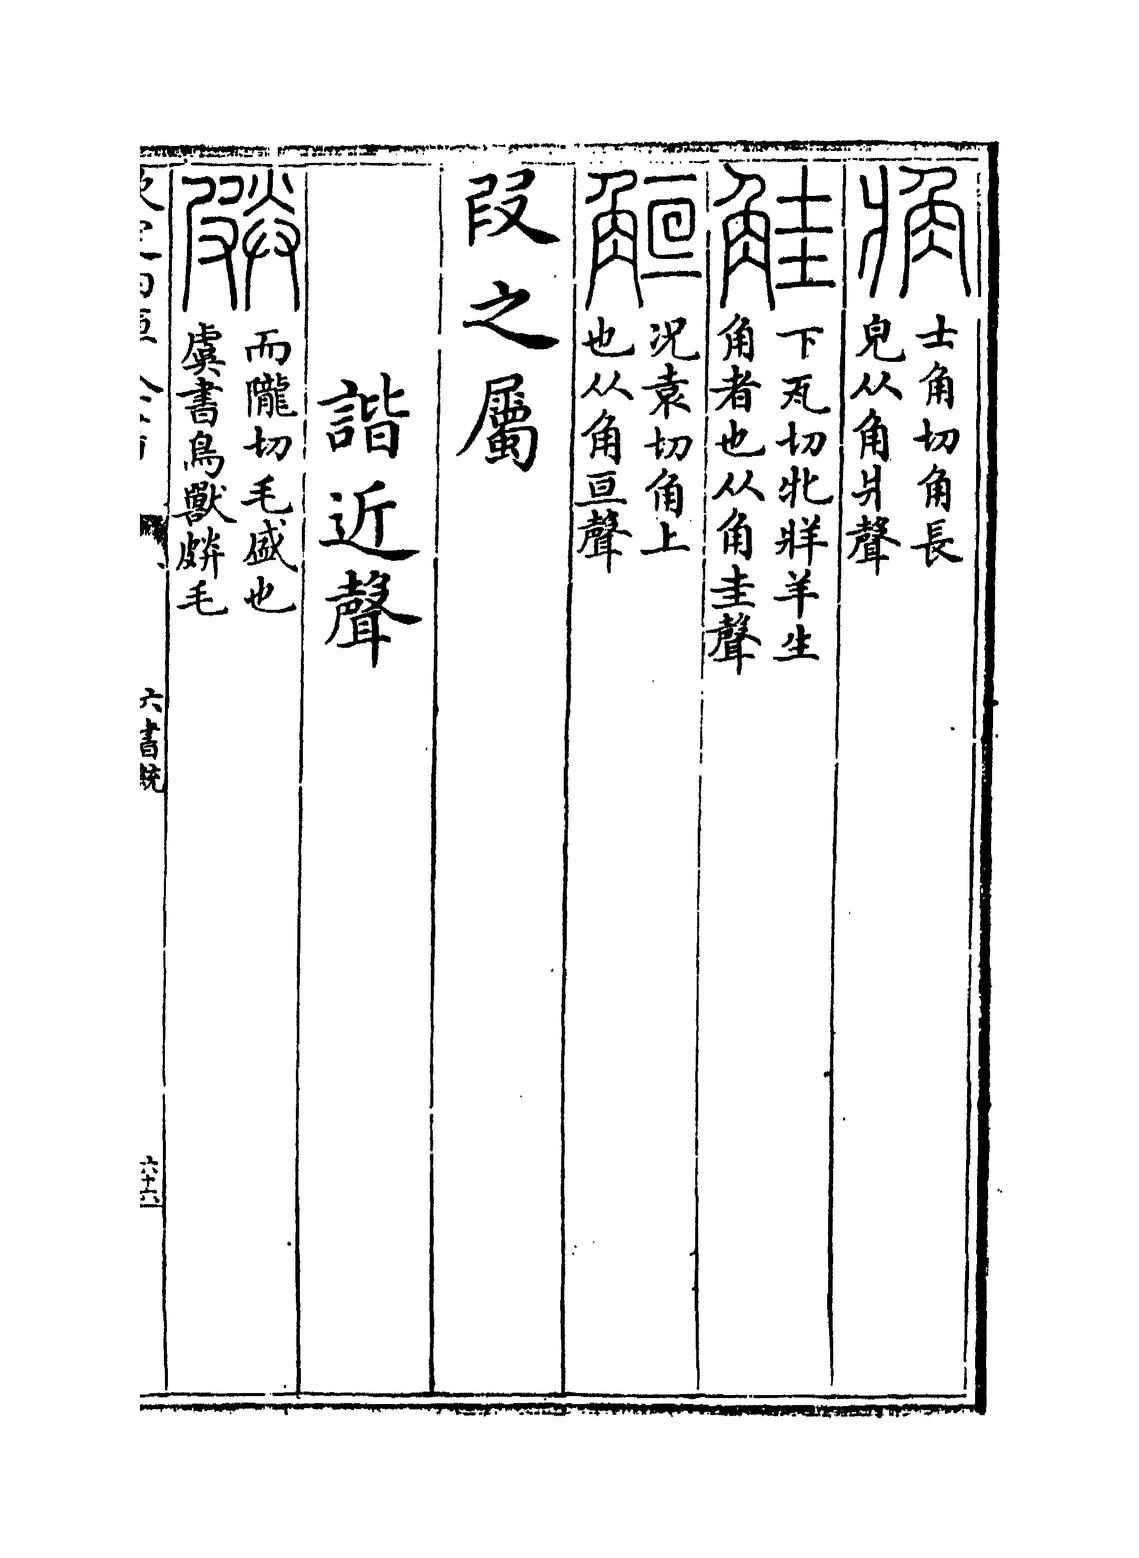 士角切角長
皃从角爿聲
下瓦切牝牂羊生
角者也从角圭聲
况袁切角上
也从角亘聲
𠬝之屬
諧近聲
而隴切毛盛也
虞書鳥獸𣯍毛
六書統
六十六